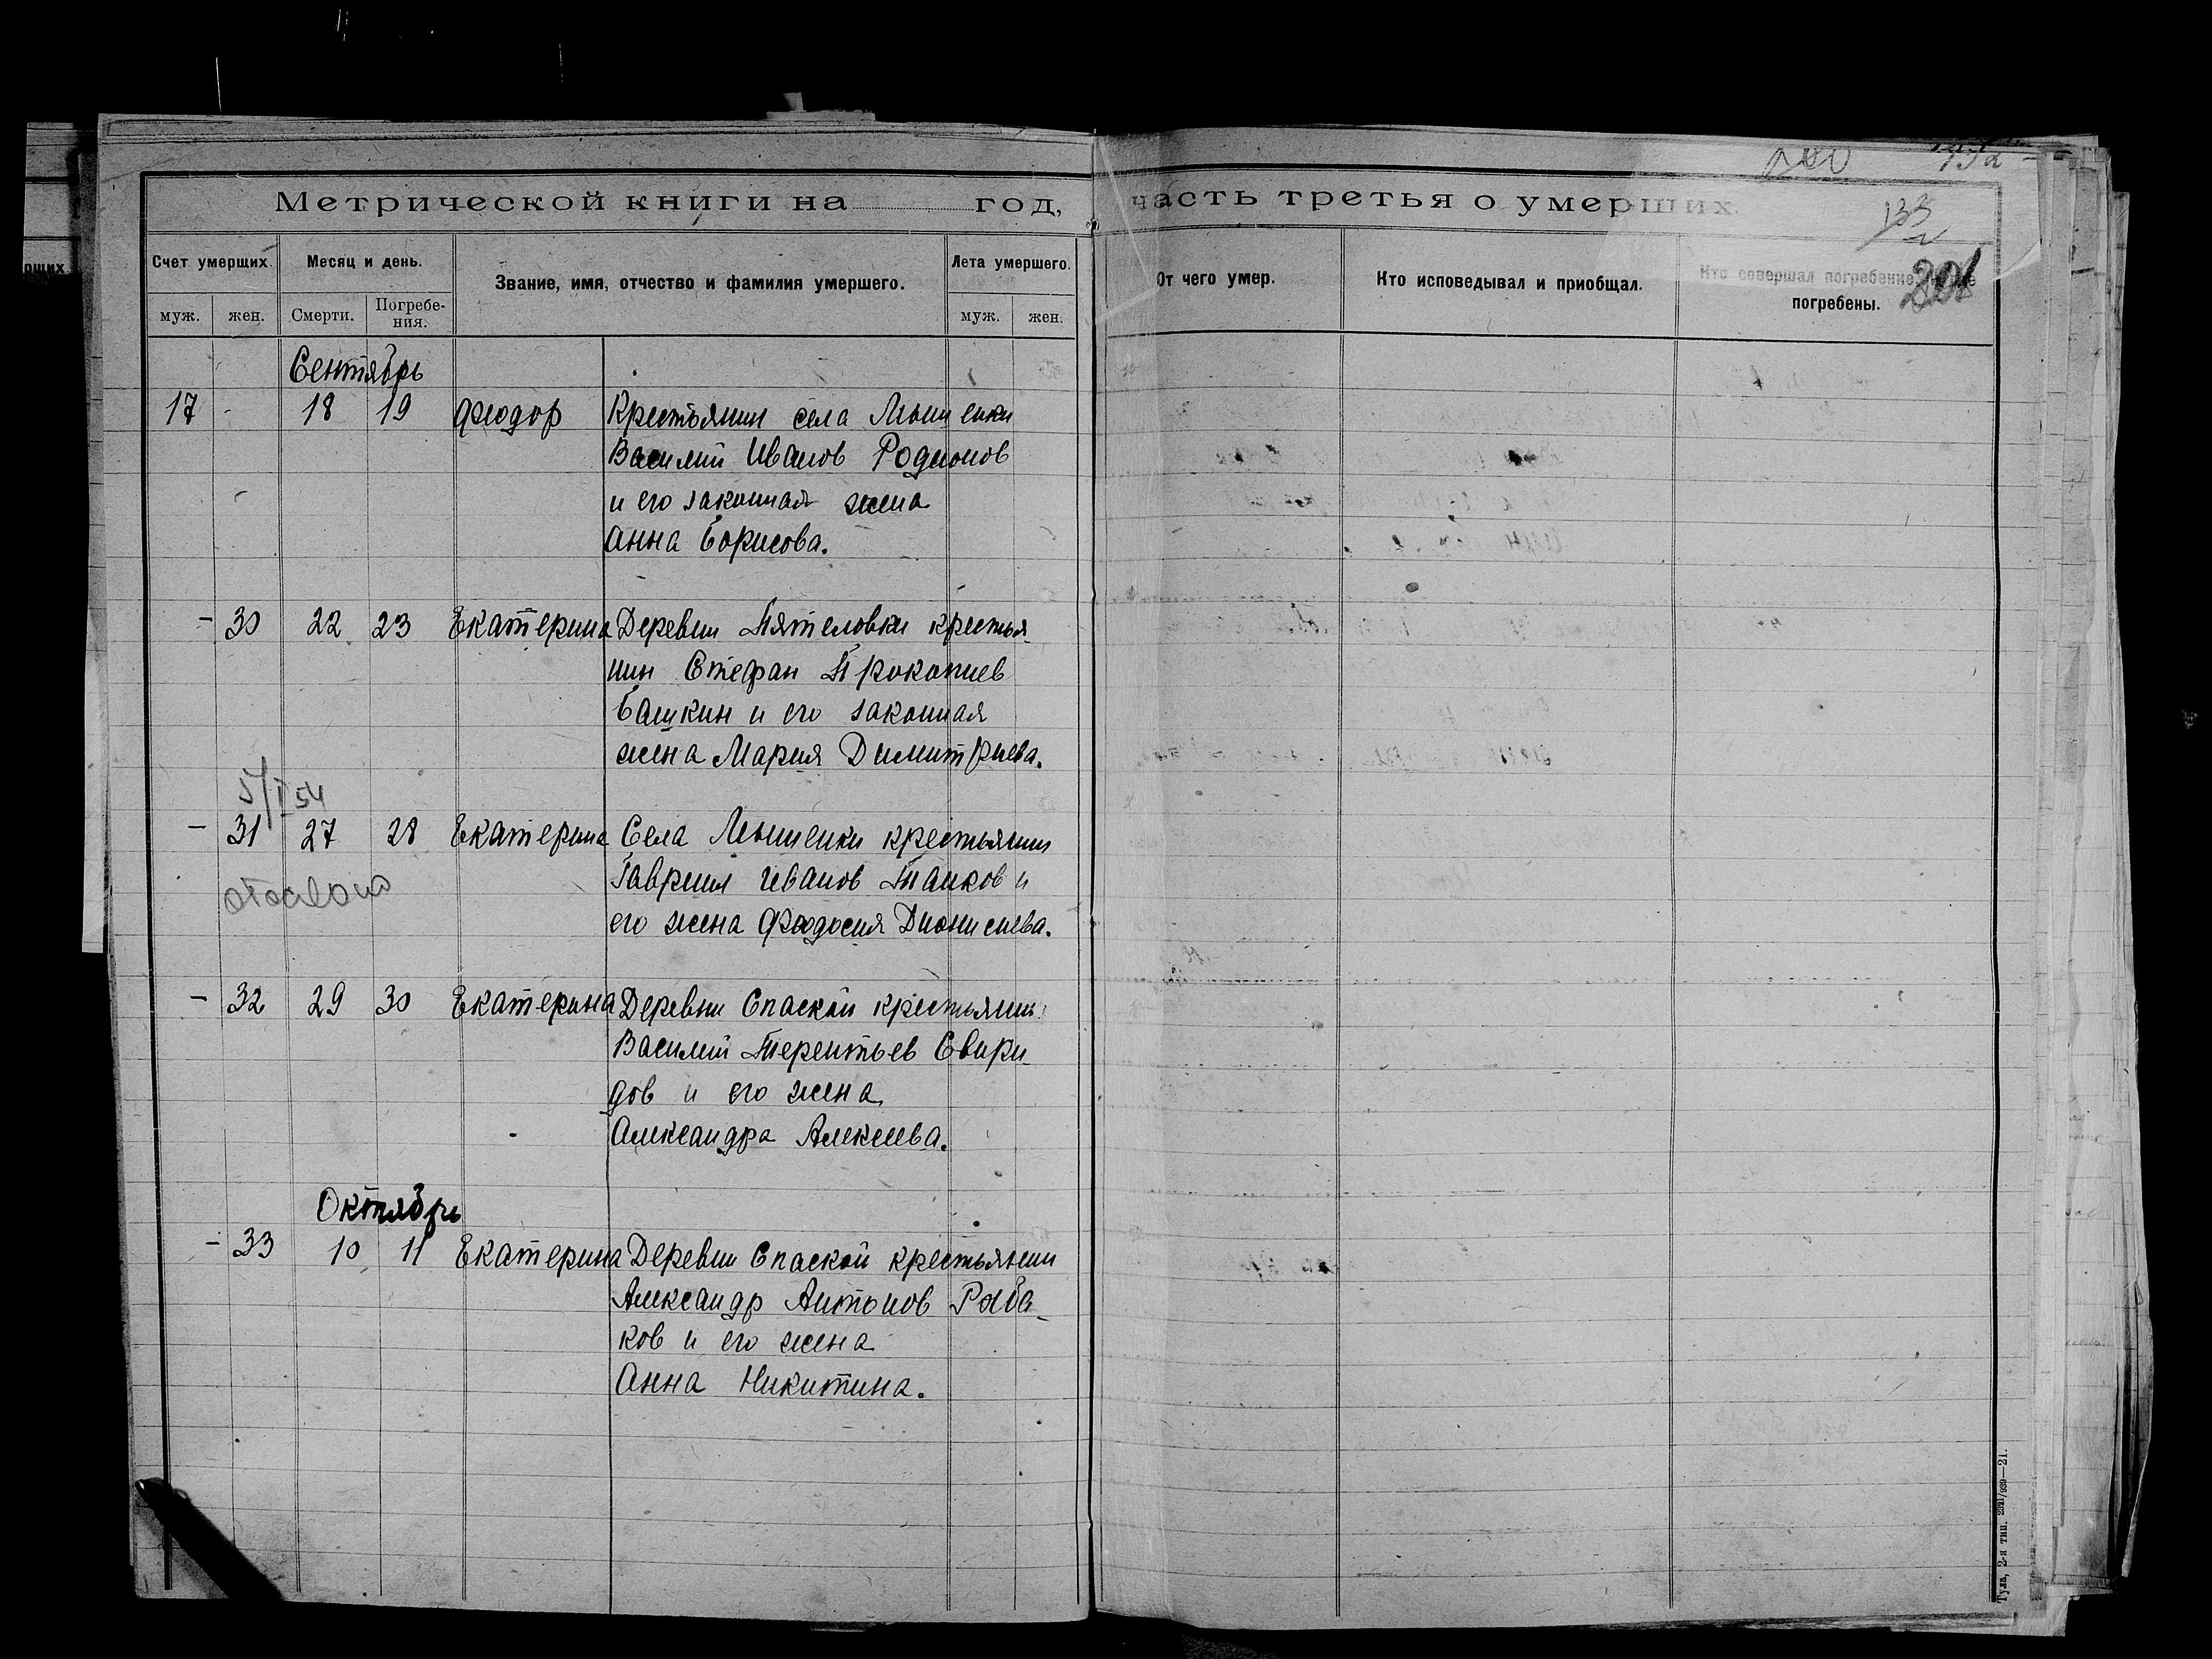 Метрической книги на год,
часть третья о умерших.
133
201
Счет умерших.
Месяц и день.
Звание, имя, отчество и фамилия умершего.
Лета умершего.
муж.
жен.
Смерти.
Погребе-
ния.
муж.
жен.
От чего умер.
Кто исповедывал и приобщал.
Кто совершал погребение
погребены.
Сентябрь
17 - 18 19 Феодор Крестьянин села Мышенки
Василий Иванов Родионов
и его законная жена
Анна Борисова.
- 30 22 23 Екатерина Деревни Пятеловки крестья-
нин Стефан Прокопиев
Башкин и его законная
жена Мария Димитриева.
5/I 54
- 31 27 28 Екатерина Села Мышенки крестьянин
Гавриил Иванов Танков и
его жена Феодосия Дионисиева.
отослано
- 32 29 30 Екатерина Деревни Спаской крестьянин
Василий Терентьев Свири-
дов и его жена
Александра Алексеева.
Октябрь
- 33 10 11 Екатерина Деревни Спаской крестьянин
Александр Антонов Рыба-
ков и его жена
Анна Никитина.
Тула, 2-я тип.